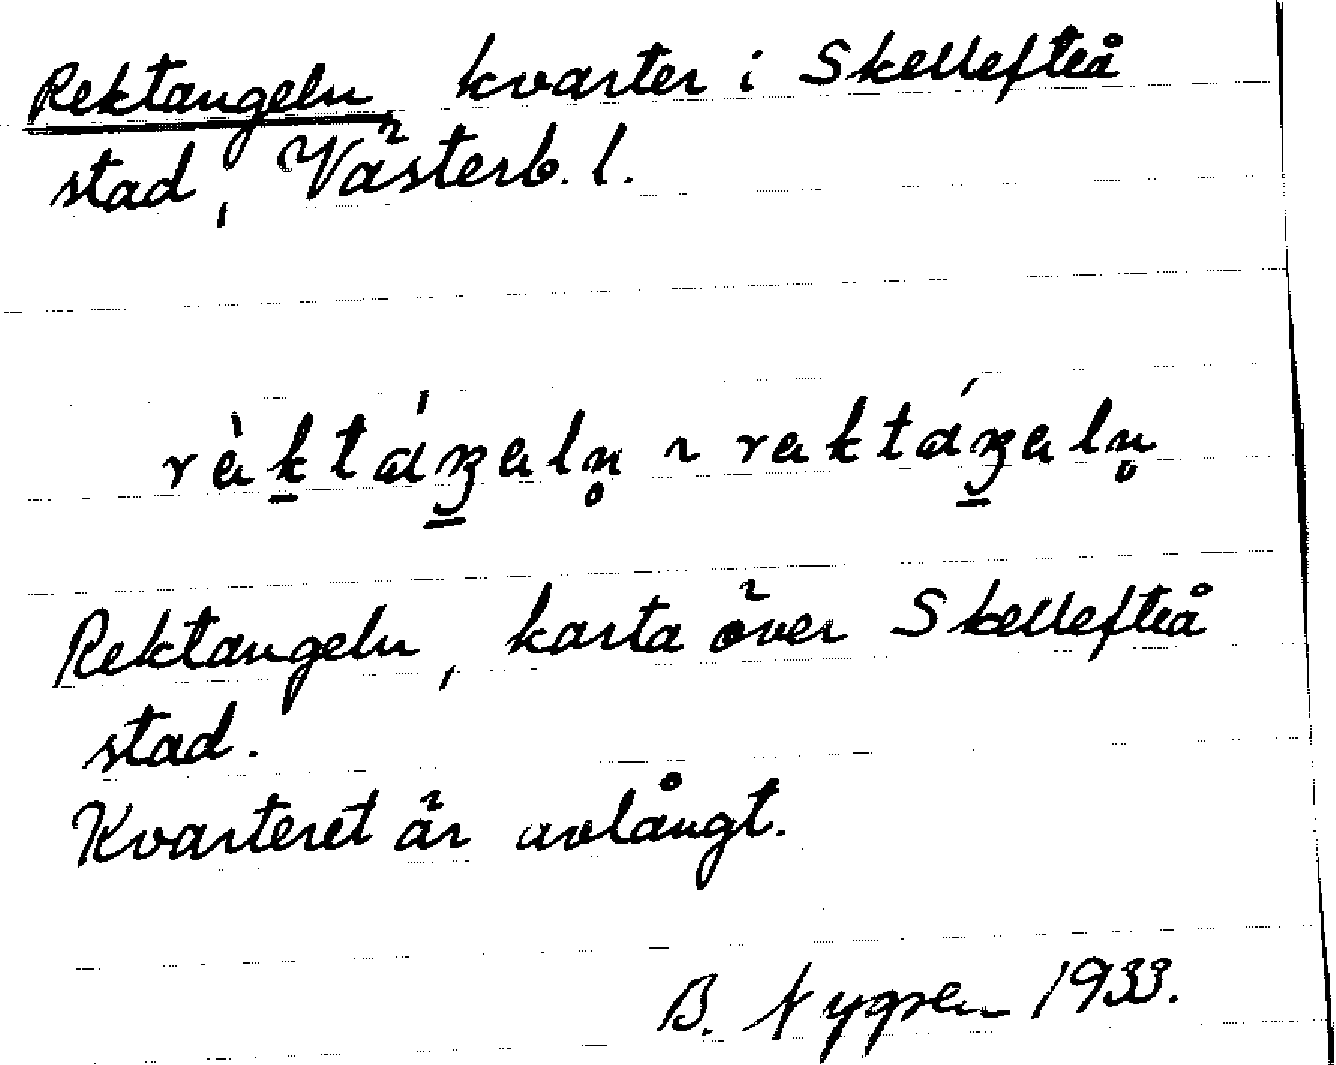 Rektangeln, kvarter i Skellefteå
stad, Västerb. l.
rὰk̠táŋ̠aln̥ ~ raktáŋ̠aln̥
Rektangeln, karta över Skellefteå
stad.
Kvarteret är avlångt.
B. Nygren 1933.